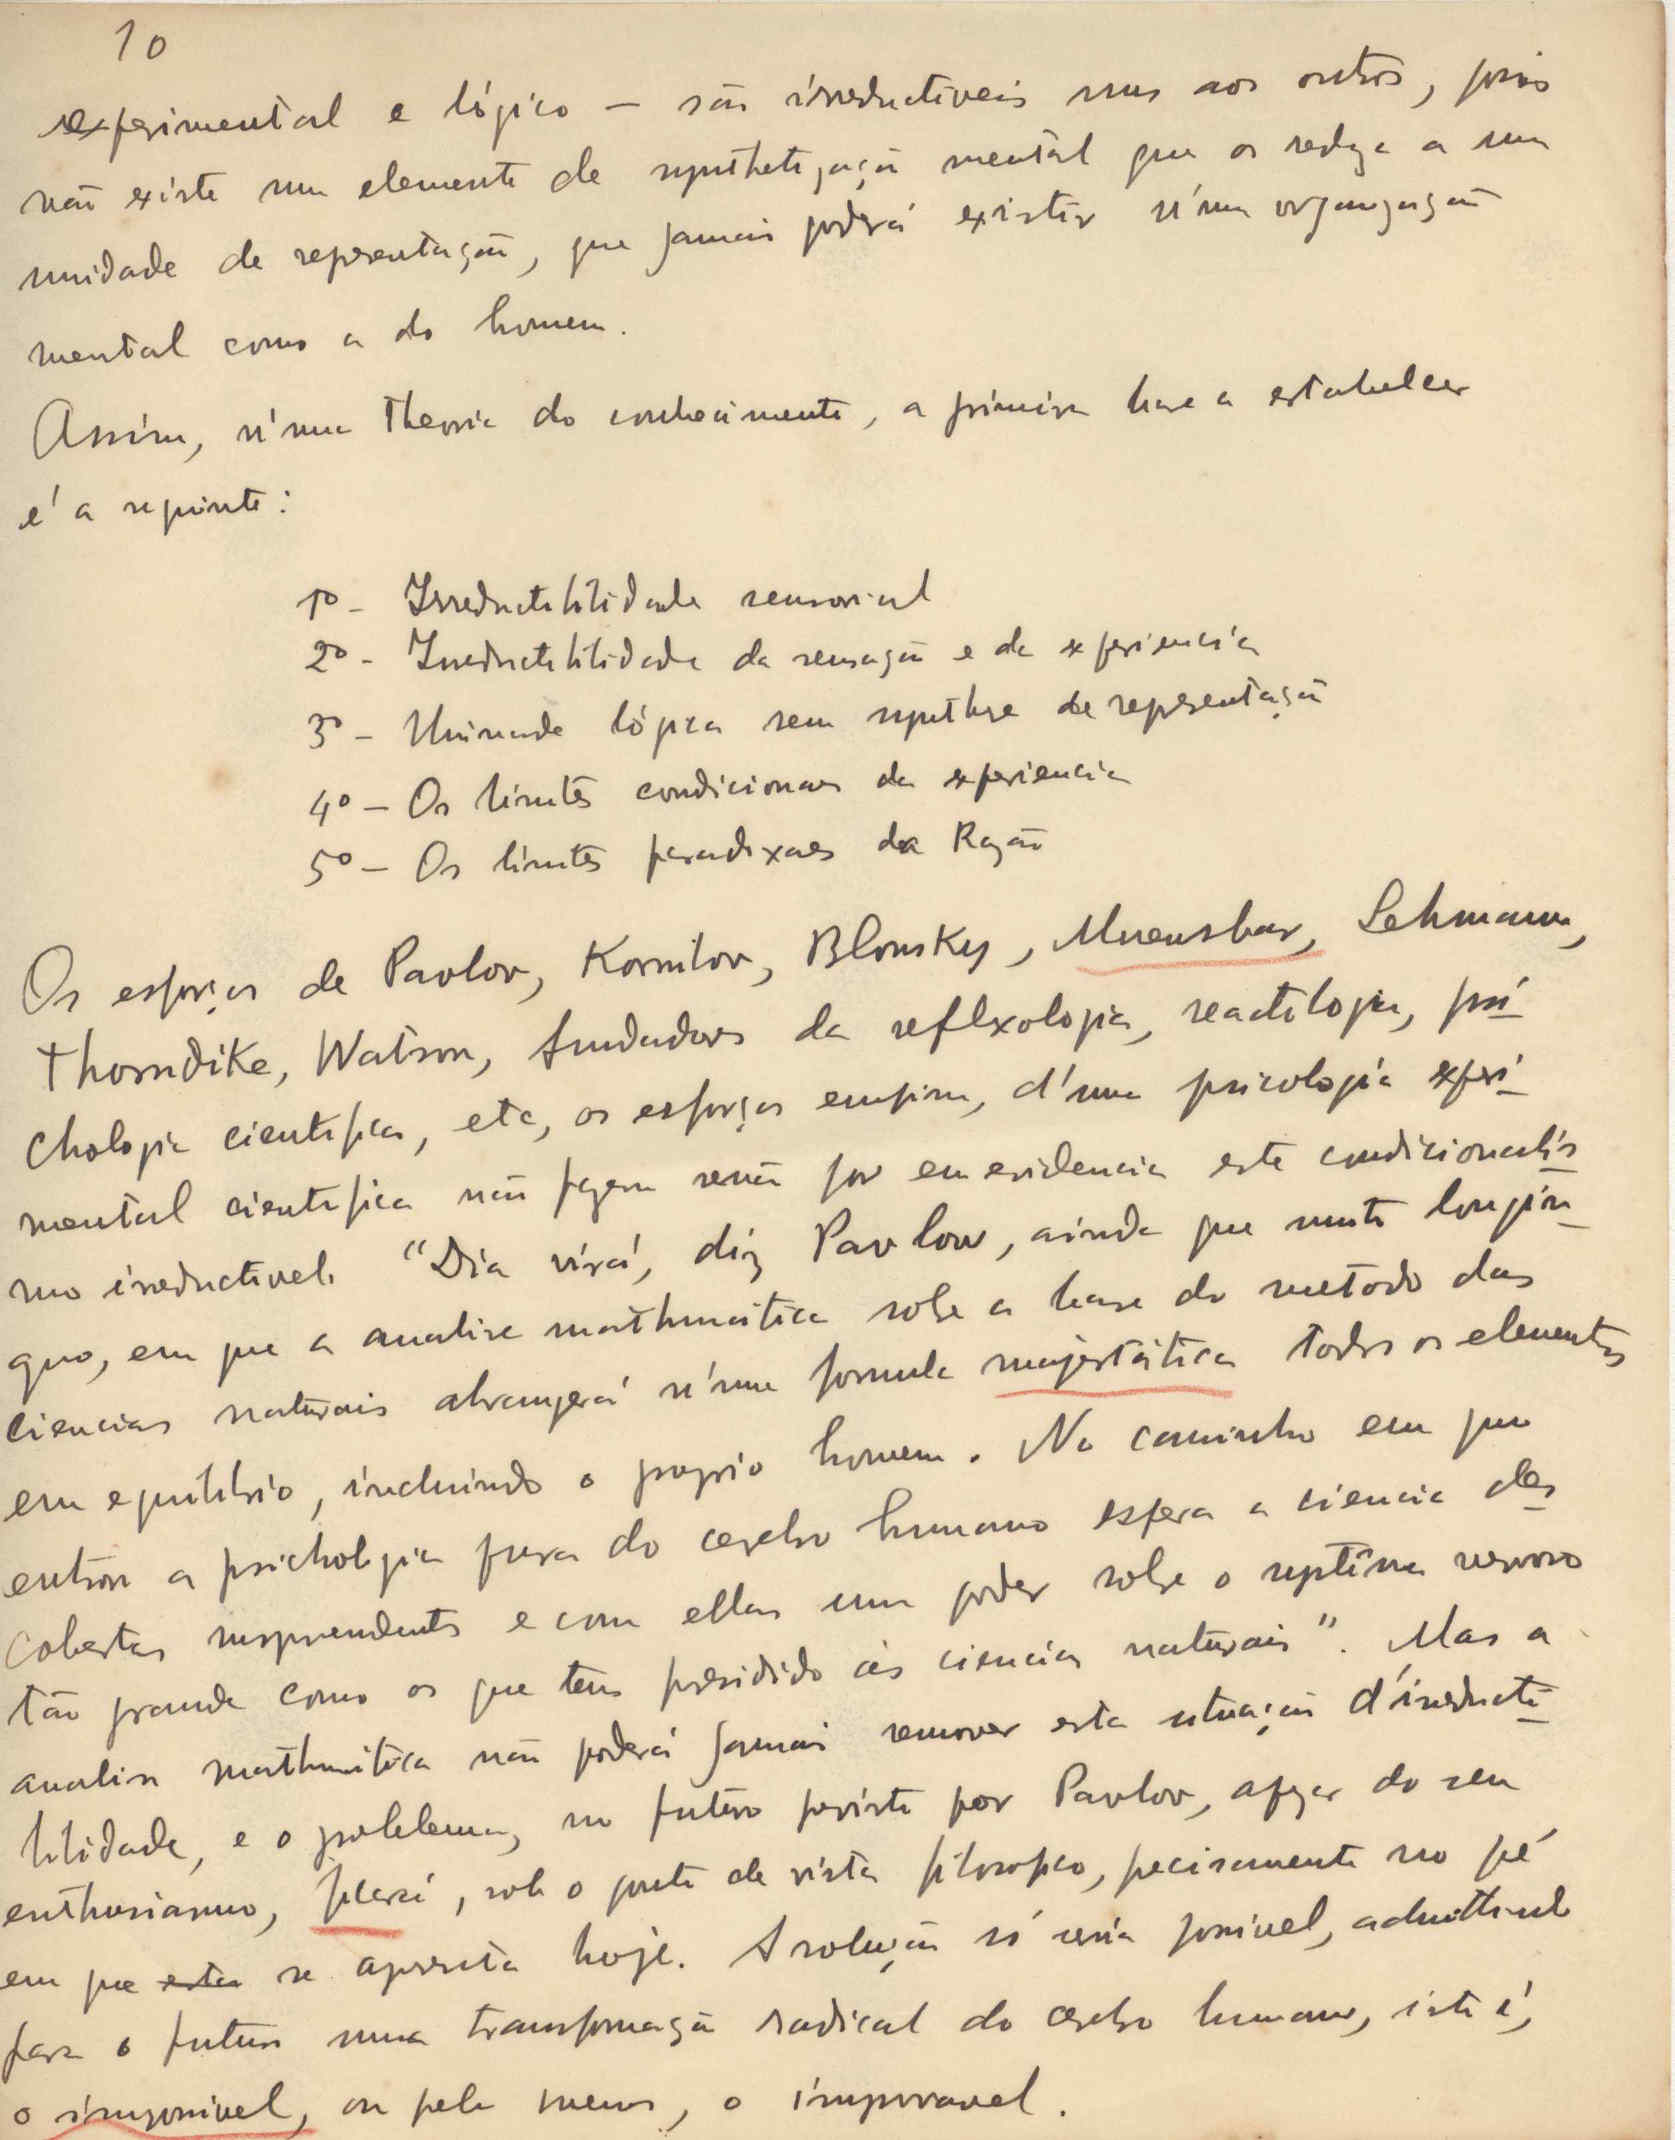 10
experimental e lógico — são irreductiveis uns aos outros, pois
não existe um elemento de synthetização mental que os reduza a uma
unidade de representação, que jamais poderá existir n'uma organização
mental como a do homem.
Assim, n'uma theoria do conhecimento, a primeira base a estabelecer
é a seguinte:
1º - Irreductibilidade sensorial
2º - Irreductibilidade da sensação e da experiencia
3º - Unidade lógica sem synthese de representação
4º - Os limites condicionaes da experiencia
5º - Os limites paradoxaes da Razão
Os esforços de Pavlov, Kornilov, Blonsky, Muensbar, Lehmann,
Thorndike, Watson, fundadores da reflexologia, reactologia, psi-
chologia cientifica, etc, os esforços emfim, d'uma psicologia experi-
mental cientifica não fazem senão pôr em evidencia este condicionalis-
mo irreductivel. "Dia virá, diz Pavlow, ainda que muito longin-
quo, em que a analise mathmática sobre a base do metodo das
ciencias naturais abrangerá n'uma formula majestática todos os elementos
em equilibrio, incluindo o proprio homem. No caminho em que
entrou a psichologia pura do cerebro humano espera a ciencia des-
cobertas surprendentes e com ellas um poder sobre o systêma nervoso
tão grande como os que tem presidido ás ciencias naturais". Mas a
analise mathmática não poderá jamais remover esta situação d'irreducti-
bilidade, e o problema, no futuro previsto por Pavlov, apezar do seu
enthusiasmo, ficará, sob o ponto de vista filosofico, precisamente no pé
em que esta se apresenta hoje. A solução só seria possivel, admittindo
para o futuro uma transformação radical do cerebro humano, isto é,
o impossivel, ou pelo menos, o improvavel.